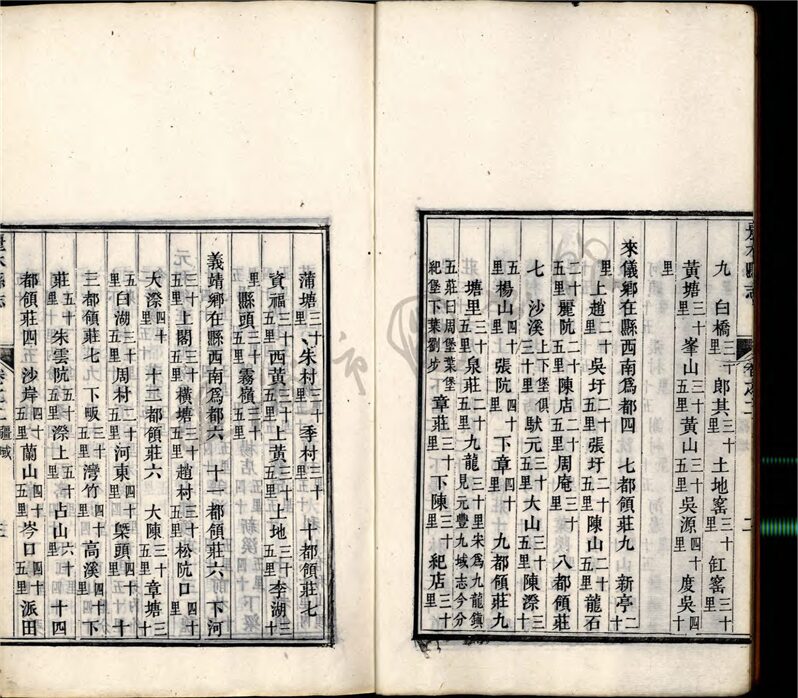 九 臼橋三十里 郎其三十里 土地窑三十里 缸窑三十里
黃塘三十里 峯山三十五里 黃山三十五里 吳源四十里 度吳四十
里
來儀鄉在縣西南爲都四 七都領莊九 新亭二十
里 上趙二十里 吳圩二十五里 張圩二十五里 陳山二十五里 龍石
二十五里 麗阬二十五里 陳店二十五里 周庵三十里 八都領莊
七 沙溪上下堡俱三十里 馱元三十里 大山三十五里 陳漈三十
五里 楊山四十里 張阬四十五里 下章四十里 九都領莊九
塘里三十五里 泉莊二十五里 九龍三十里宋爲九龍鎮見元豐九域志今分
五莊曰周堡葉堡紀堡下葉劉步 章莊三十里 下陳三十里 紀店三十里
蒲塘三十里 朱村三十里 季村三十里 十都領莊七
資福三十五里 西黃三十五里 上黃三十五里 上地三十五里 李湖三十
里 縣頭三十五里 霧嶺三十五里
義靖鄉在縣西南爲都六 十一都領莊六 下河
三十里 上閣三十五里 橫塘三十五里 趙村三十五里 松阮口四十里
大漈四十里 十二都領莊六 大陳三十五里 章塘三十
五里 臼湖三十五里 周村二十五里 河東四十里 槩頭四十里 十
三都領莊七 下畈三十五里 灣竹四十里 高溪四十里 下
莊五十里 朱雲阮五十五里 漈上五十五里 占山六十里 十四
都領莊四 沙岸四十五里 蘭山四十五里 岑口四十五里 派田
卷之二 疆域